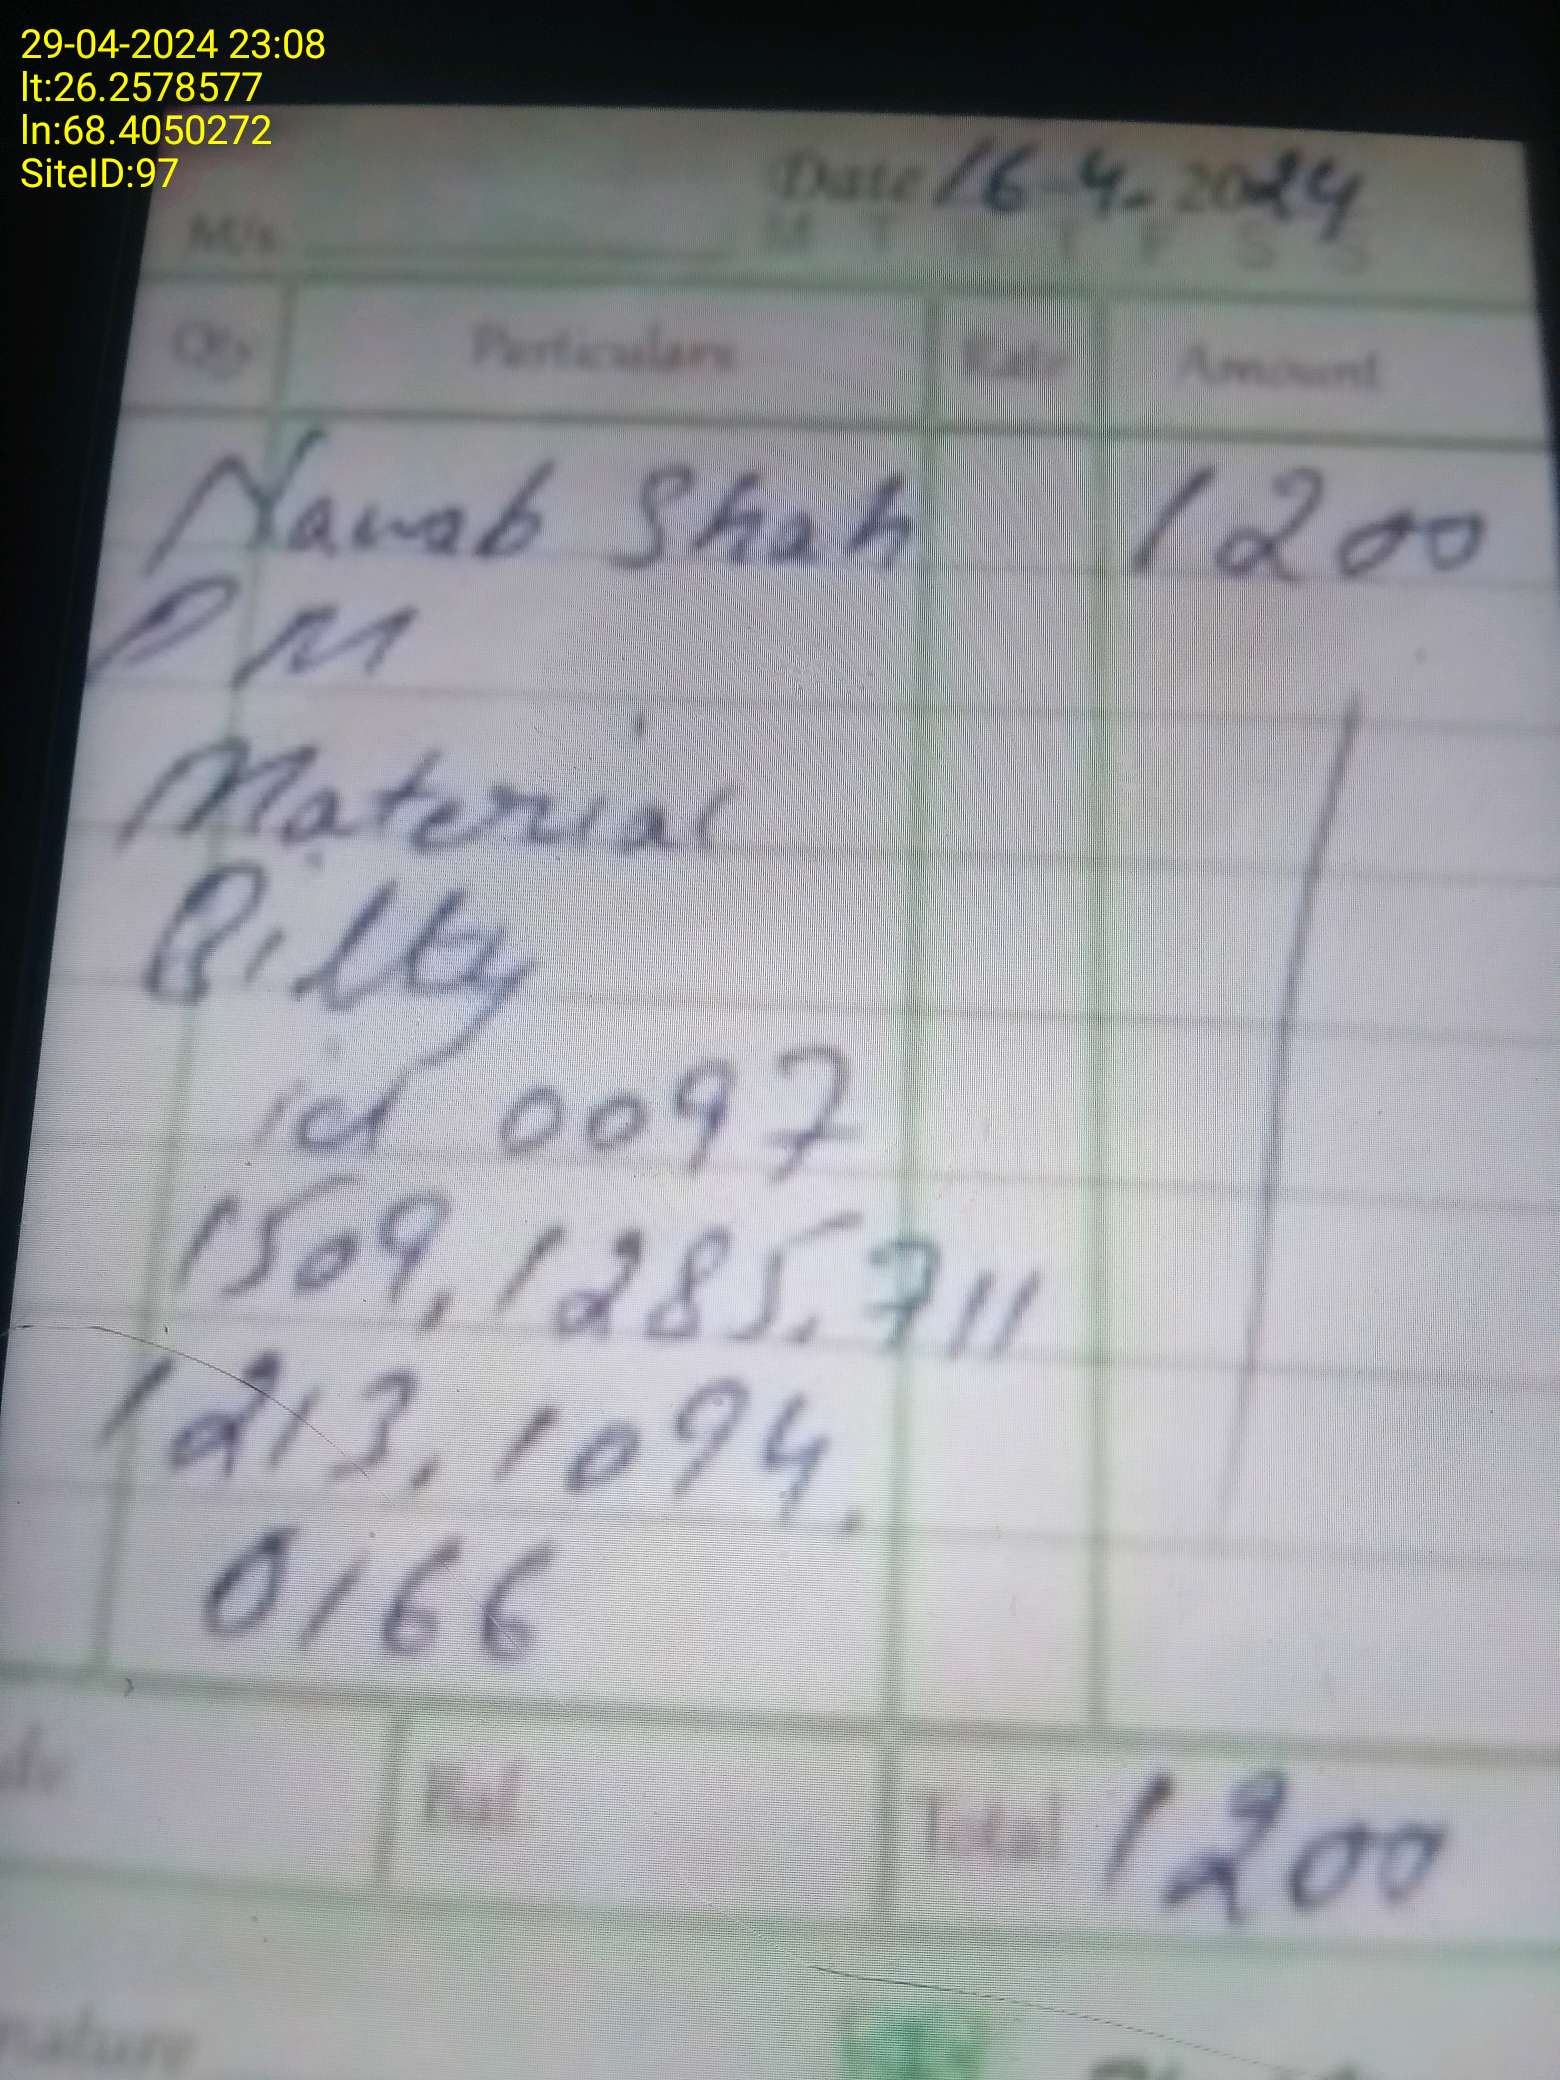 29-04-2024 23:08
lt:26.2578577
ln:68.4050272
SiteID:97
Date 16-4-2024
M/s.
M T W T F S S
Qty Particulars Rate Amount
Nawab Shah 1200
PM
Material
Bilty
id 0097
1509, 1285, 711
1213, 1094,
0166
Total 1200
nature